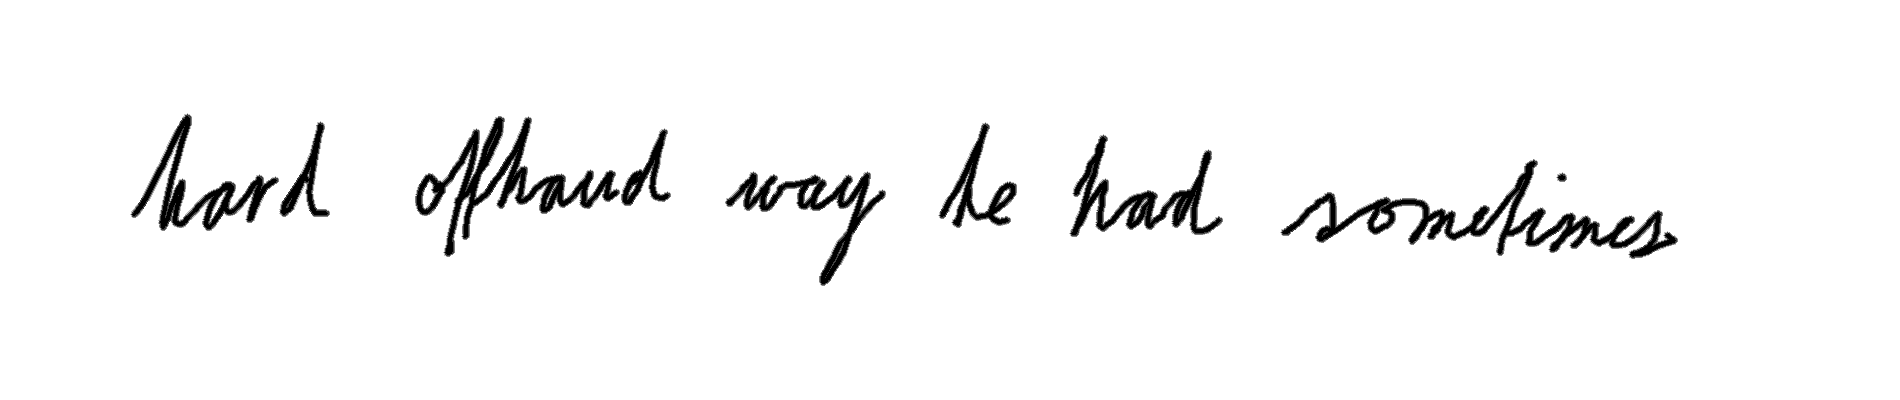 hard offhand way he had sometimes